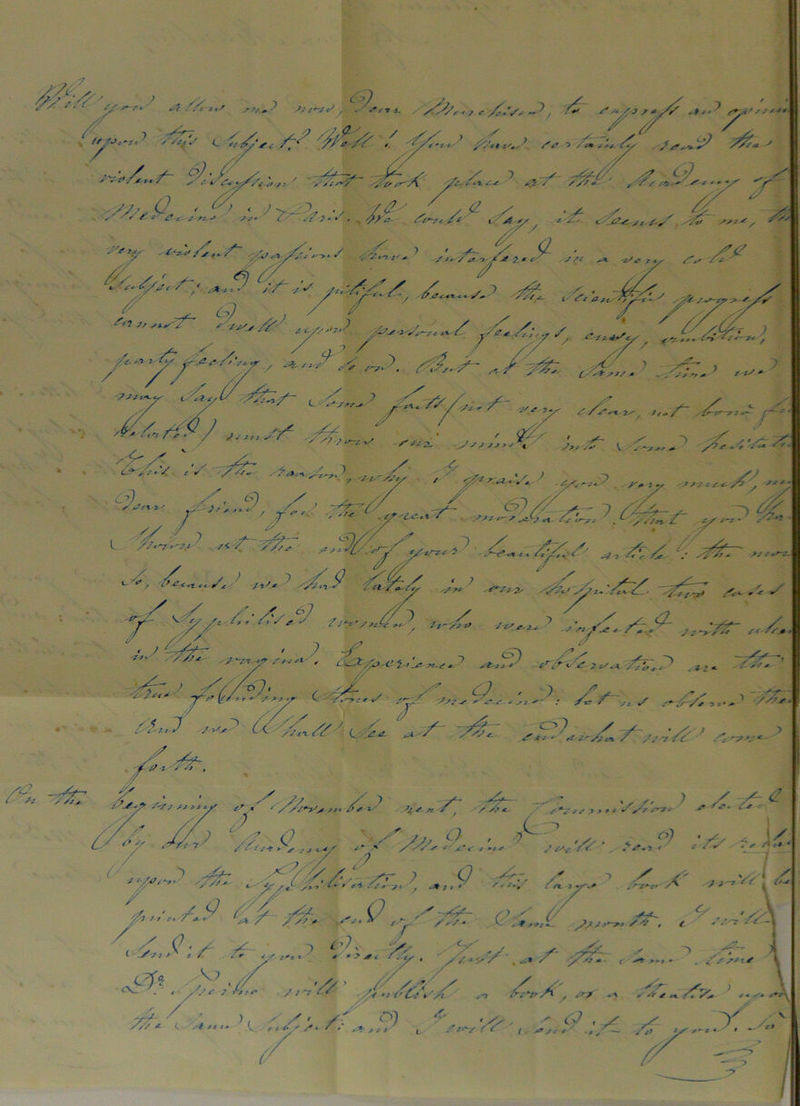 Will you allow me now, Dear Murchison, to express an opinion
upon this Subject? Well! You have certainly read the
violent Discussion that took place at the Academy of
Medecine in Paris. We could say, it seems to me, the
very violent passions have interfered in a very cold
Subject; and it is pitiful, because the scientific progress
cannot dwell upon personal feelings, envy, ambition,
party feeling, and so on. But at the Same time we
may Say that Some facts (not very clear, not bona fide
related) must throw our minds into Some hesitation.
This is the reason, why I praise you very much, my
Dear friend, for the great moderation, that you have
Shown at the end of your beautiful article: the more
So, because we had lately in our hospital two cases
of Syphilised women, who were infected with ulcers
in the vagina. Experience and observation are the
true founding Stones of medecine: let us observe then
And we Shall See at the end what will come
forth.
On the
beginning of November next, the Commission elected
by our Academy of Medecine will read its
upon the Syphilisation, and this large book will be
printed at the end of the Same month. I will
Send it to you Directly. Just at the Same time
Dr. Sperino will publish a book, or a treatise upon
the Same Subject: and I will send it to you. So